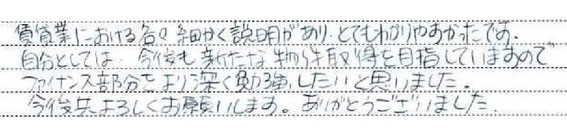 賃貸業における各々細かく説明があり、とてもわかりやすかったです。
自分としては、今後も新たな物件取得を目指していますので
ファイナンス部分をより深く勉強したいと思いました。
今後共よろしくお願いします。ありがとうございました。